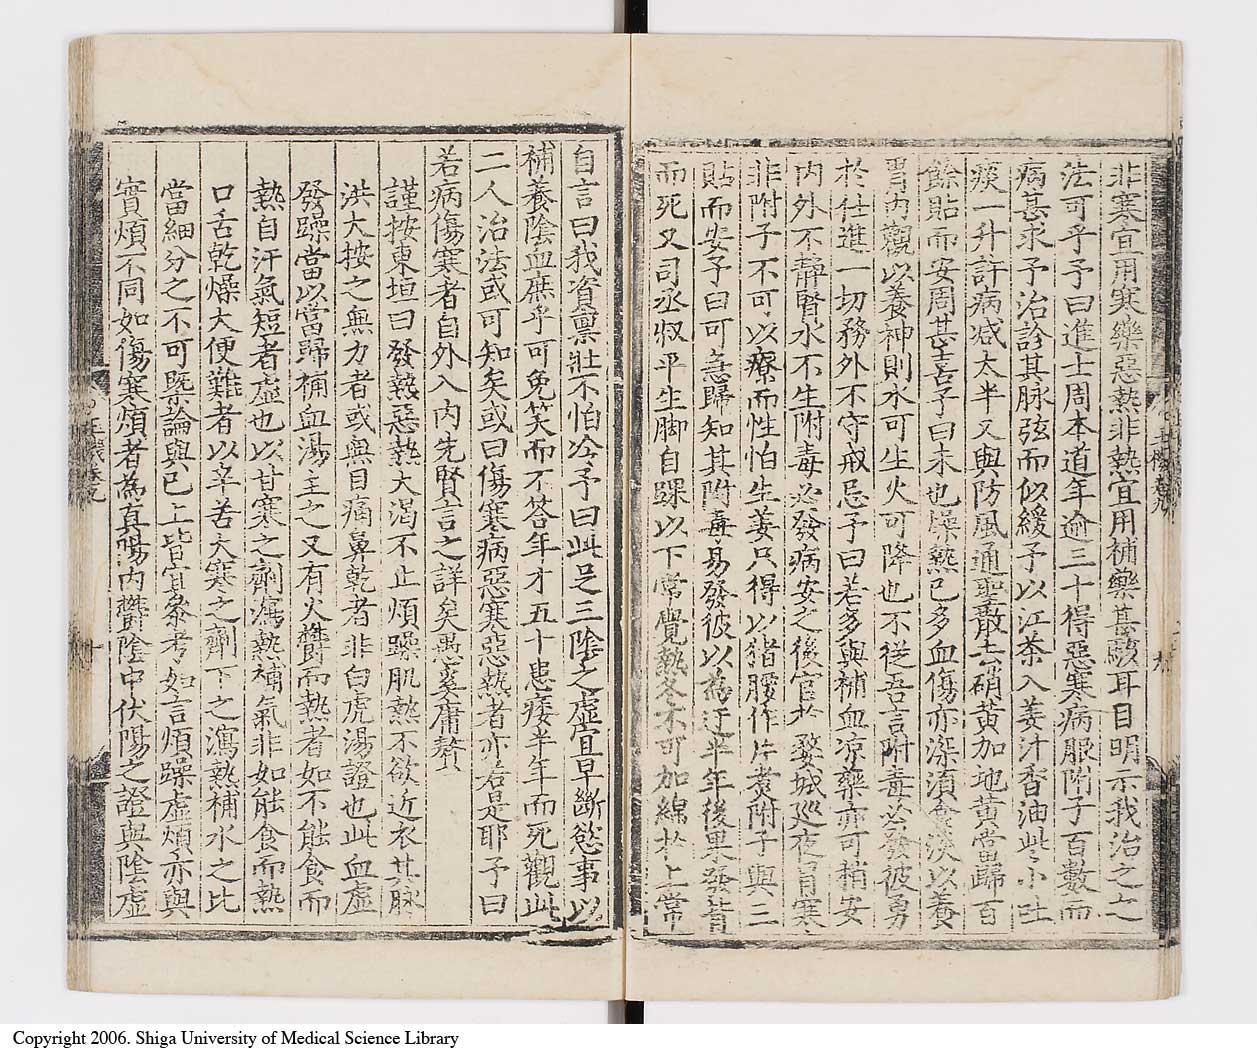 非寒宜用寒藥惡熱非熱宜用補藥甚駭耳目明示我治之之
法可乎予曰進士周本道年逾三十得惡寒病服附子百數而
病甚求予治診其脉弦而似緩予以江茶入姜汁香油些小吐
痰一升許病减太半又與防風通聖散去硝黃加地黃當歸百
餘貼而安周甚喜予曰未也燥熱已多血傷亦深須食淡以養
胃內觀以養神則水可生火可降也不從吾言附毒必發彼勇
於仕進一切務外不守戒忌予曰若多與補血凉藥亦可稍安
內外不靜腎水不生附毒必發病安之後官於婺城巡夜冒寒
非附子不可以療而性怕生姜只得以猪腰作片煑附子與三
貼而安予曰可急歸知其附毒易發彼以為迂半年後果發背
而死又司丞叔平生脚自踝以下常覺熱冬不可加綿於上常
自言曰我資禀壯不怕冷予曰此足三陰之虛宜早斷慾事以
補養陰血庶乎可免笑而不答年才五十患痿半年而死觀此
二人治法或可知矣或曰傷寒病惡寒惡熱者亦若是耶予曰
若病傷寒者自外入內先賢言之詳矣愚奚庸贅
謹按東垣曰發熱惡熱大渴不止煩躁肌熱不欲近衣其脉
洪大按之無力者或與目痛鼻乾者非白虎湯證也此血虛
發躁當以當歸補血湯主之又有火鬱而熱者如不能食而
熱自汗氣短者虛也以甘寒之劑瀉熱補氣非如能食而熱
口舌乾燥大便難者以辛苦大寒之劑下之瀉熱補水之比
當細分之不可槩論與已上皆宜叅考如言煩躁虛煩亦與
實煩不同如傷寒煩者為真陽內鬱陰中伏陽之證與陰虛